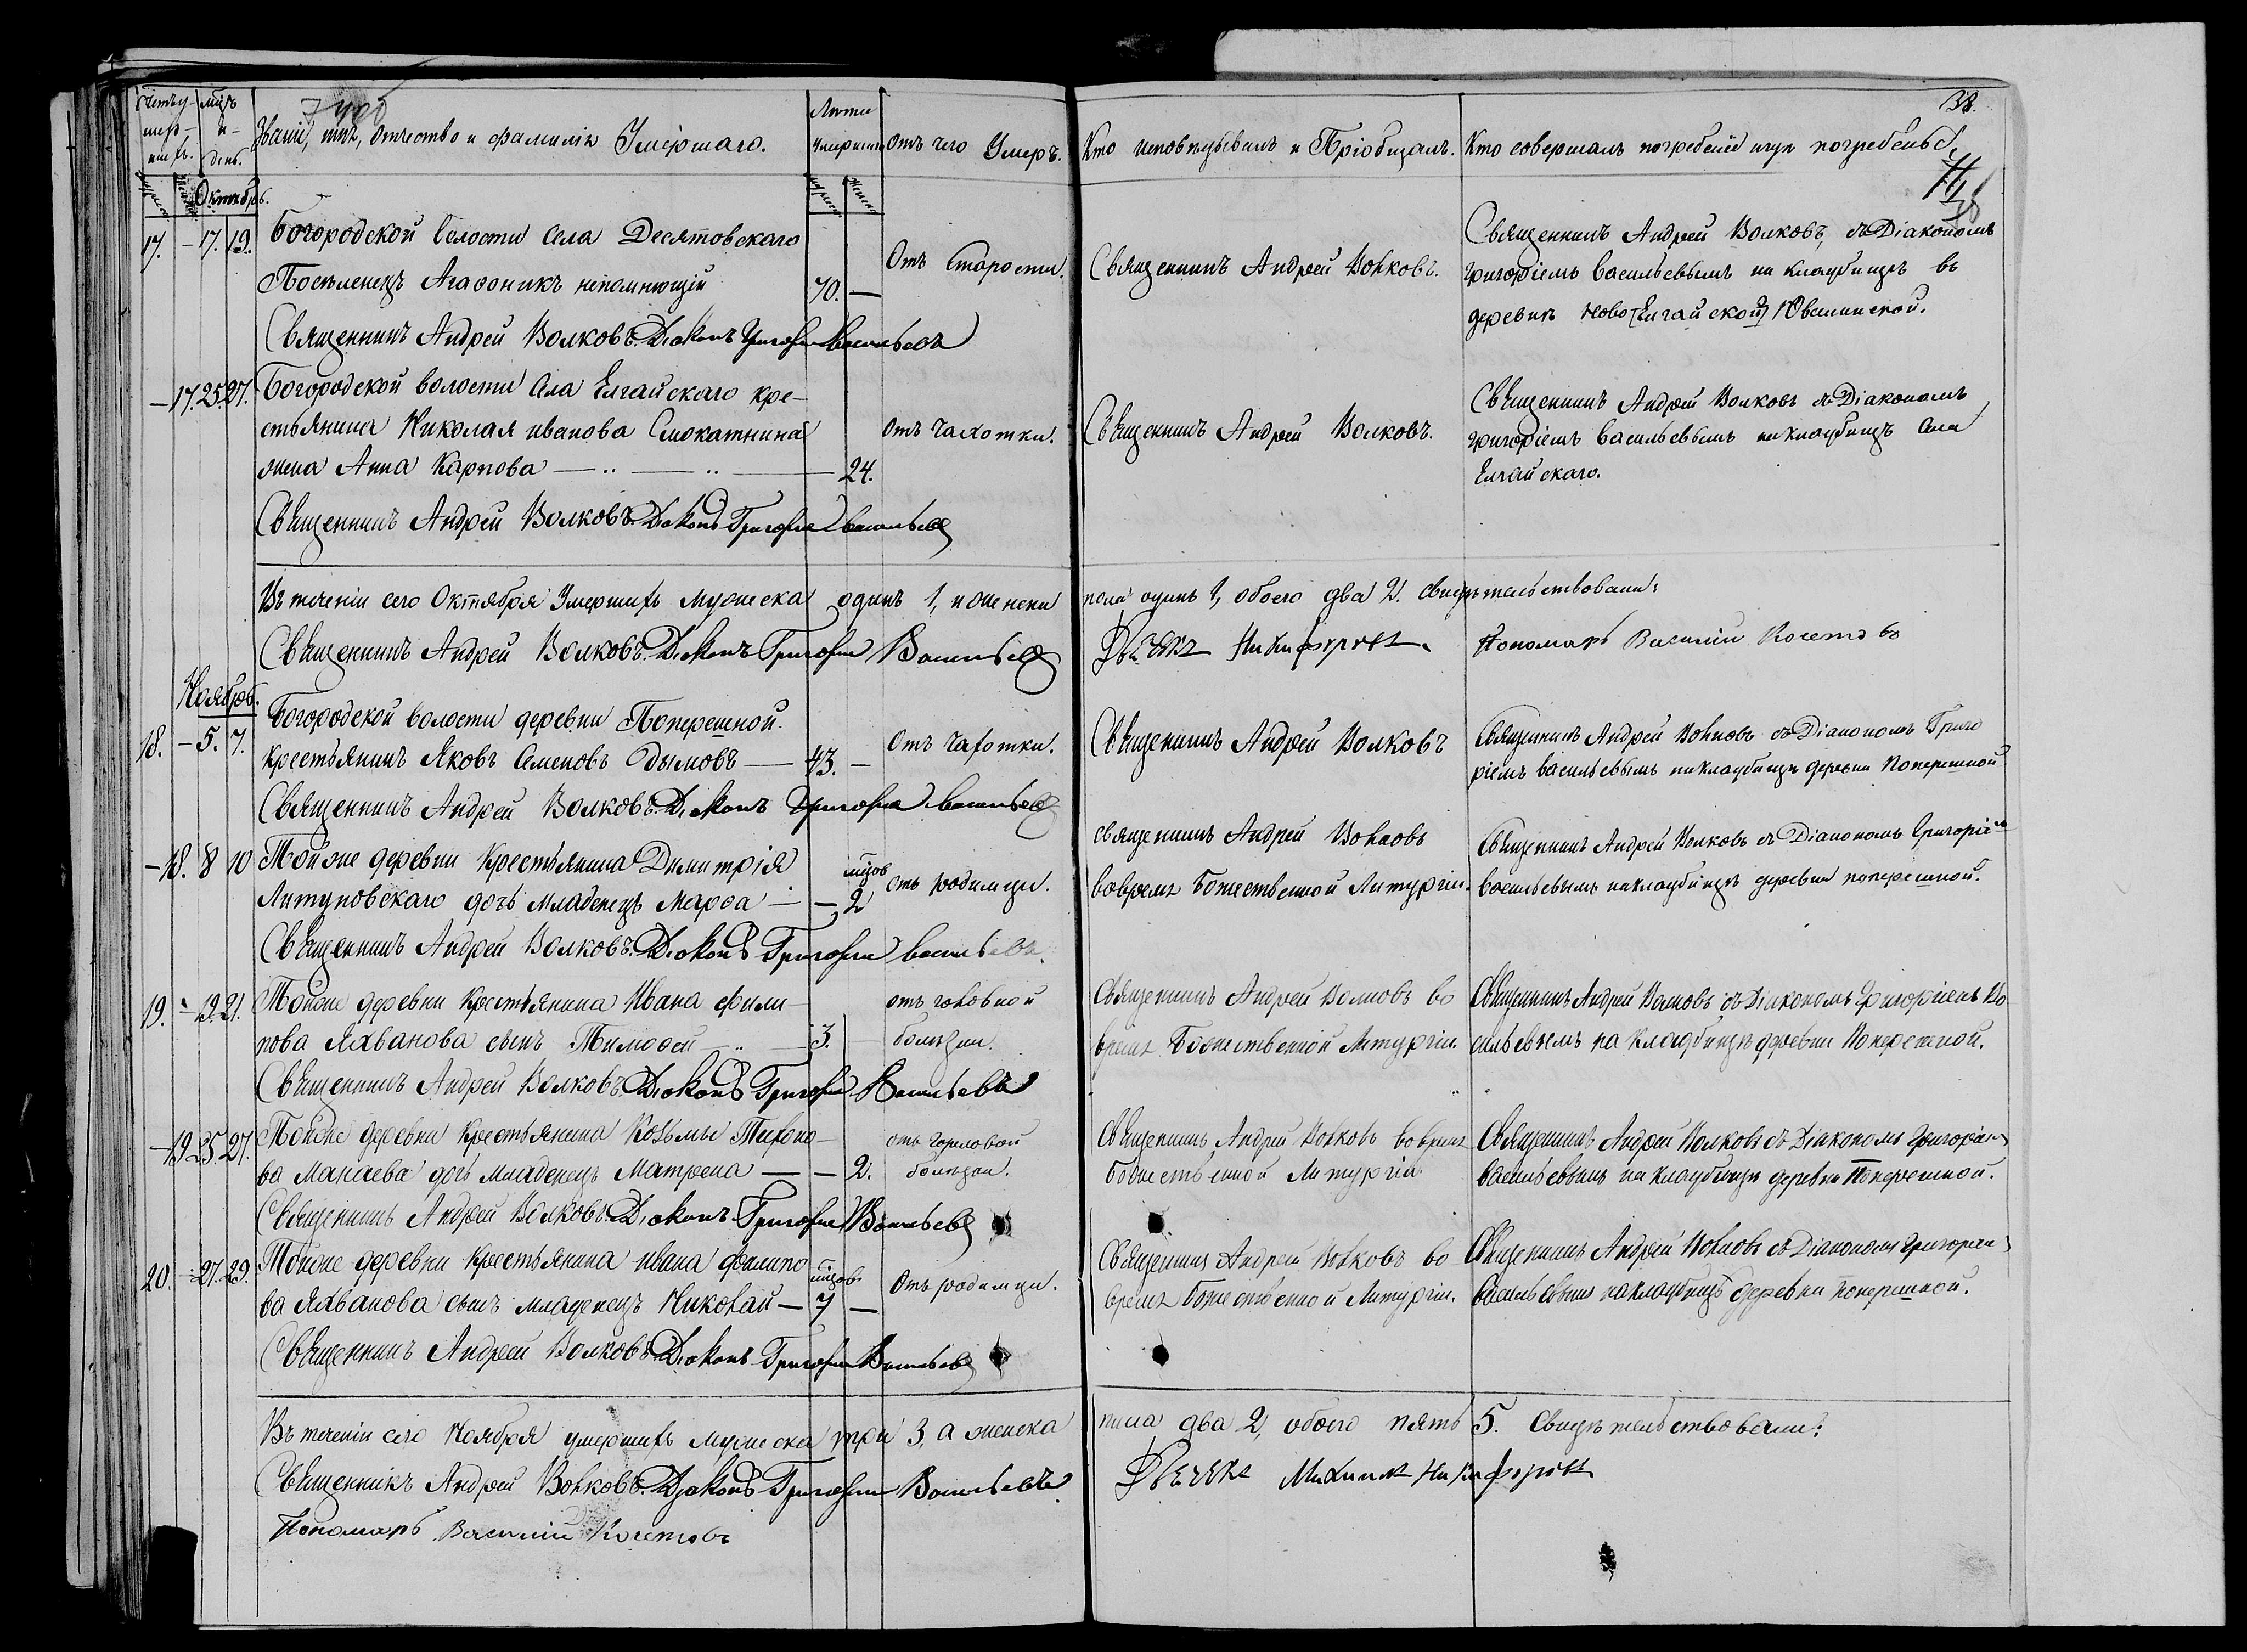 38.
Счетъ умершихъ. Мѣсяцъ и день. Званіе, имя, отчество и фамилія Умершаго. Лѣта умершаго Отъ чего Умеръ. Кто исповѣдывалъ и Пріобщалъ. Кто совершалъ погребеніе и гдѣ погребенъ.
Октябрь.
17. – 17. 19. Богородской волости села Десятовскаго
Поселенецъ Агаѳоникъ непомнющій 70. —
Отъ Старости.
Священникъ Андрей Волковъ.
Священникъ Андрей Волковъ, съ Діакономъ
Григоріемъ Васильевымъ на кладбищѣ въ
деревнѣ Ново Елгайской Ювалинской.
Священникъ Андрей Волковъ. Діаконъ Григорій Васильевъ
– 17. 25. 27. Богородской волости села Елгайскаго кре-
стьянина Николая Иванова Смокатнина
жена Анна Карпова — 24.
Отъ Чахотки.
Священникъ Андрей Волковъ.
Священникъ Андрей Волковъ съ Діакономъ
Григоріемъ Васильевымъ на кладбищѣ села
Елгайскаго.
Священникъ Андрей Волковъ. Діаконъ Григорій Васильевъ
Въ теченіи сего Октября Умершихъ мужеска одинъ 1, и женска пола одинъ 1, обоего два 2. свидѣтельствовали:
Священникъ Андрей Волковъ. Діаконъ Григорій Васильевъ Дьячекъ Никифоровъ. Пономарь Василій Кочетовъ
Ноябрь.
18. – 5. 7. Богородской волости деревни Поперешной
крестьянинъ Яковъ Семеновъ Одымовъ — 43. —
Отъ чахотки.
Священникъ Андрей Волковъ
Священникъ Андрей Волковъ съ Діакономъ Григо
ріемъ Васильевымъ на кладбищѣ деревни Поперешной
Священникъ Андрей Волковъ. Діаконъ Григорій Васильевъ
– 18. 8 10 Тойже деревни Крестьянина Димитрія
Литуновскаго дочь младенецъ Марѳа — — мѣсцов 2
отъ родимца.
священникъ Андрей Волковъ
вовремя Божественной Литургіи.
Священникъ Андрей Волковъ съ Діакономъ Григоріемъ
Васильевымъ на кладбищѣ деревни поперешной.
Священникъ Андрей Волковъ. Діаконъ Григорій Васильевъ.
19. – 19. 21. Тойже деревни Крестьянина Ивана Фили-
пова Яхванова сынъ Тимоѳей — 3.
отъ головной
болѣзни.
Священникъ Андрей Волковъ во
время Божественной Литургіи
Священникъ Андрей Волковъ съ Діакономъ Григоріемъ Ва-
сильевымъ на кладбищѣ деревни Поперешной.
Священникъ Андрей Волковъ. Діаконъ Григорій Васильевъ
– 19 25. 27. Тойже деревни Крестьянина Козьмы Тихоно-
ва Манаева дочь младенецъ Матрена — — 2.
отъ горловой
болѣзни.
Священникъ Андрей Волковъ вовремя
Божественной Литургіи
Священникъ Андрей Волковъ съ Діакономъ Григоріемъ
Васильевымъ на кладбищѣ деревни Поперешной.
Священникъ Андрей Волковъ. Діаконъ Григорій Васильевъ
20. – 27. 29. Тойже деревни Крестьянина Ивана Филипо
ва Яхванова сынъ младенецъ Николай — мѣсцовъ 7 —
Отъ родимца.
Священникъ Андрей Волковъ во
время Божественной Литургіи.
Священникъ Андрей Волковъ съ Діакономъ Григоріемъ
Васильевымъ на кладбищѣ деревни Поперешной.
Священникъ Андрей Волковъ. Діаконъ Григорій Васильевъ
Въ теченіи сего Ноября умершихъ мужеска три 3, а женска пола два 2, обоего пять 5. Свидѣтельствовали:
Священникъ Андрей Волковъ. Діаконъ Григорій Васильевъ Дьячекъ Михаилъ Никифоровъ
Пономарь Василій Кочетовъ